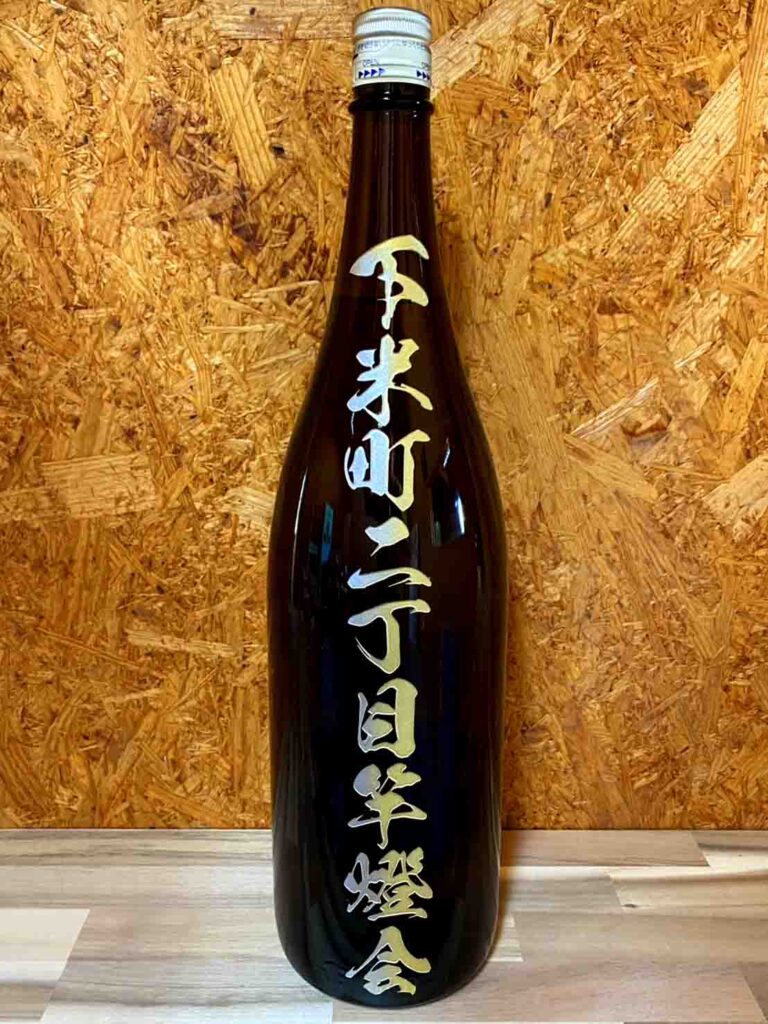 OPEN
下米町二丁目竿燈会